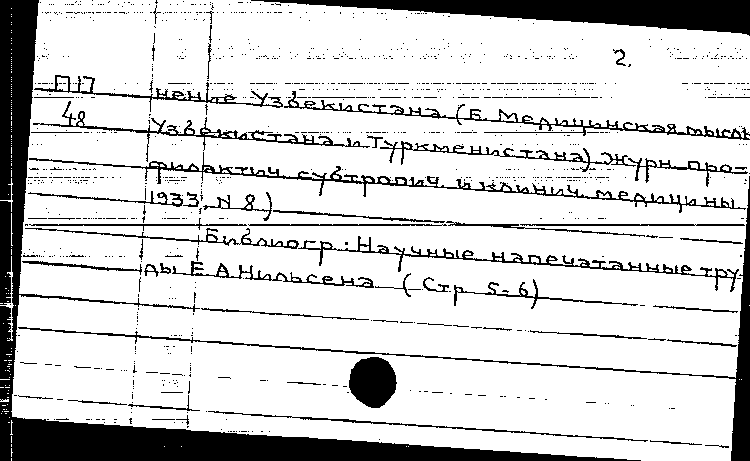 2.
П17 нение Узбекистана (б. Медицинская мысль
48 Узбекистана и Туркменистана) журн. про=
филактич. субтропич. и клинич. медицины
1933, N 8.)
Библиогр: Научные напечатанные тру-
ды Е А Нильсена (Стр 5-6)